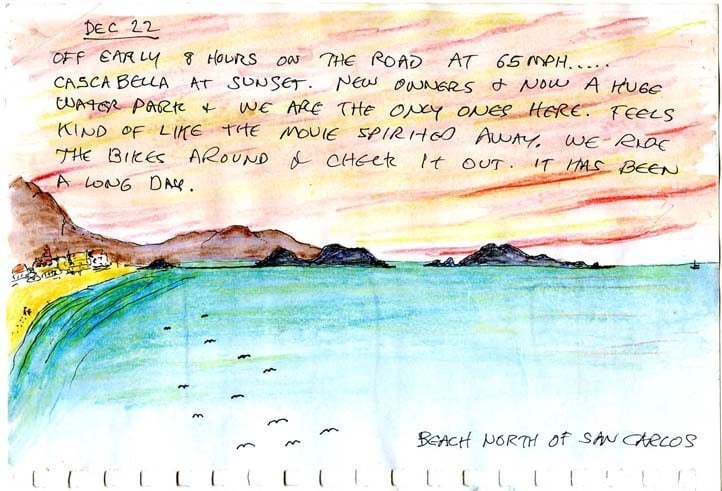 DEC 22
OFF EARLY 8 HOURS ON THE ROAD AT 65 MPH.....
CASCABELLA AT SUNSET. NEW OWNERS & NOW A HUGE
WATER PARK & WE ARE THE ONLY ONES HERE. FEELS
KIND OF LIKE THE MOVIE SPIRITED AWAY. WE RIDE
THE BIKES AROUND & CHECK IT OUT. IT HAS BEEN
A LONG DAY.
BEACH NORTH OF SAN CARLOS